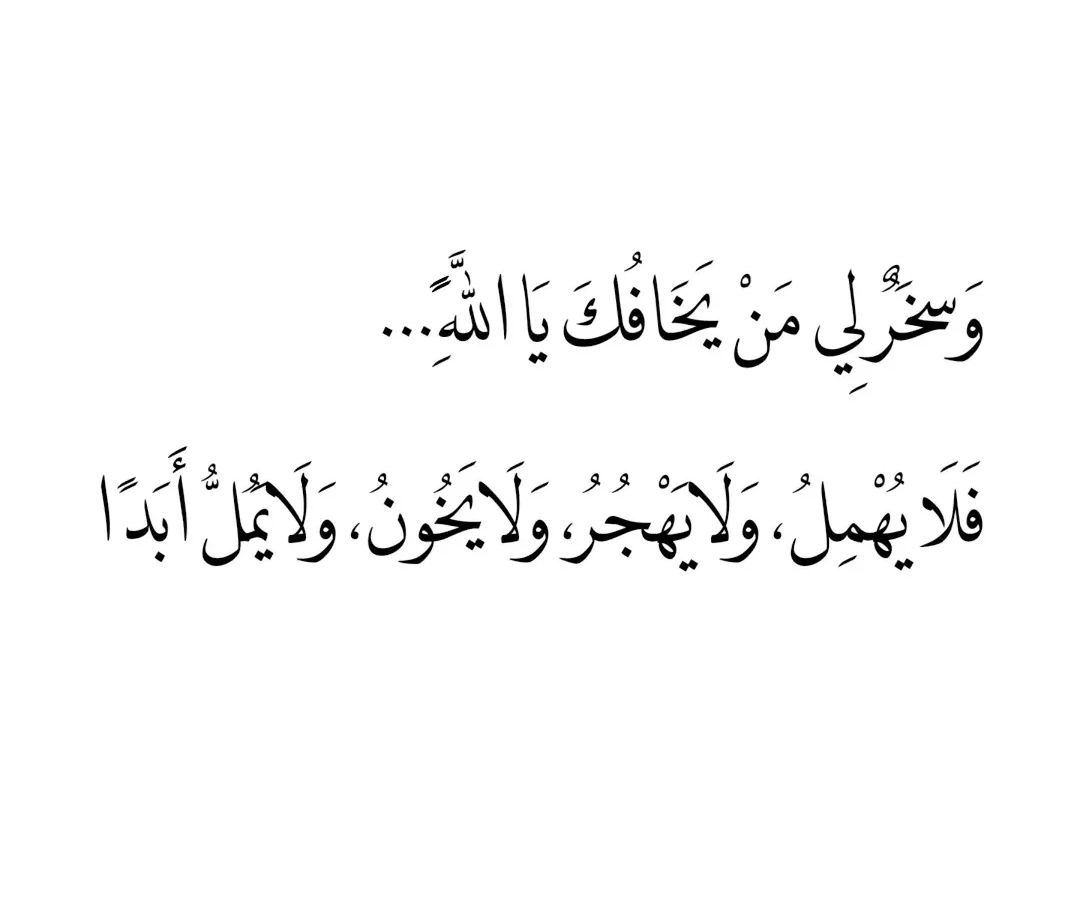 وَسخَرٌ لِي مَنْ يَخَافُكَ يَا اللَّهًِ...
فَلَا يُهْمِلُ، وَلَا يَهْجُرُ، وَلَا يَخُونُ، وَلَا يُمَلُّ أَبَدًا